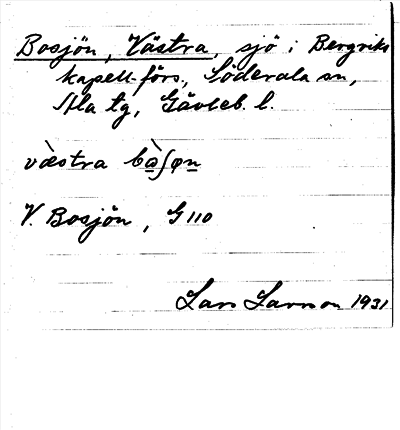 Bosjön, Västra, sjö i Bergviks
kapell-förs., Söderala sn,
Ala tg, Gävleb. l.
væ̀stra bà̱ʃɷṉ
V. Bosjön, G 110
Lars Larsson 1931